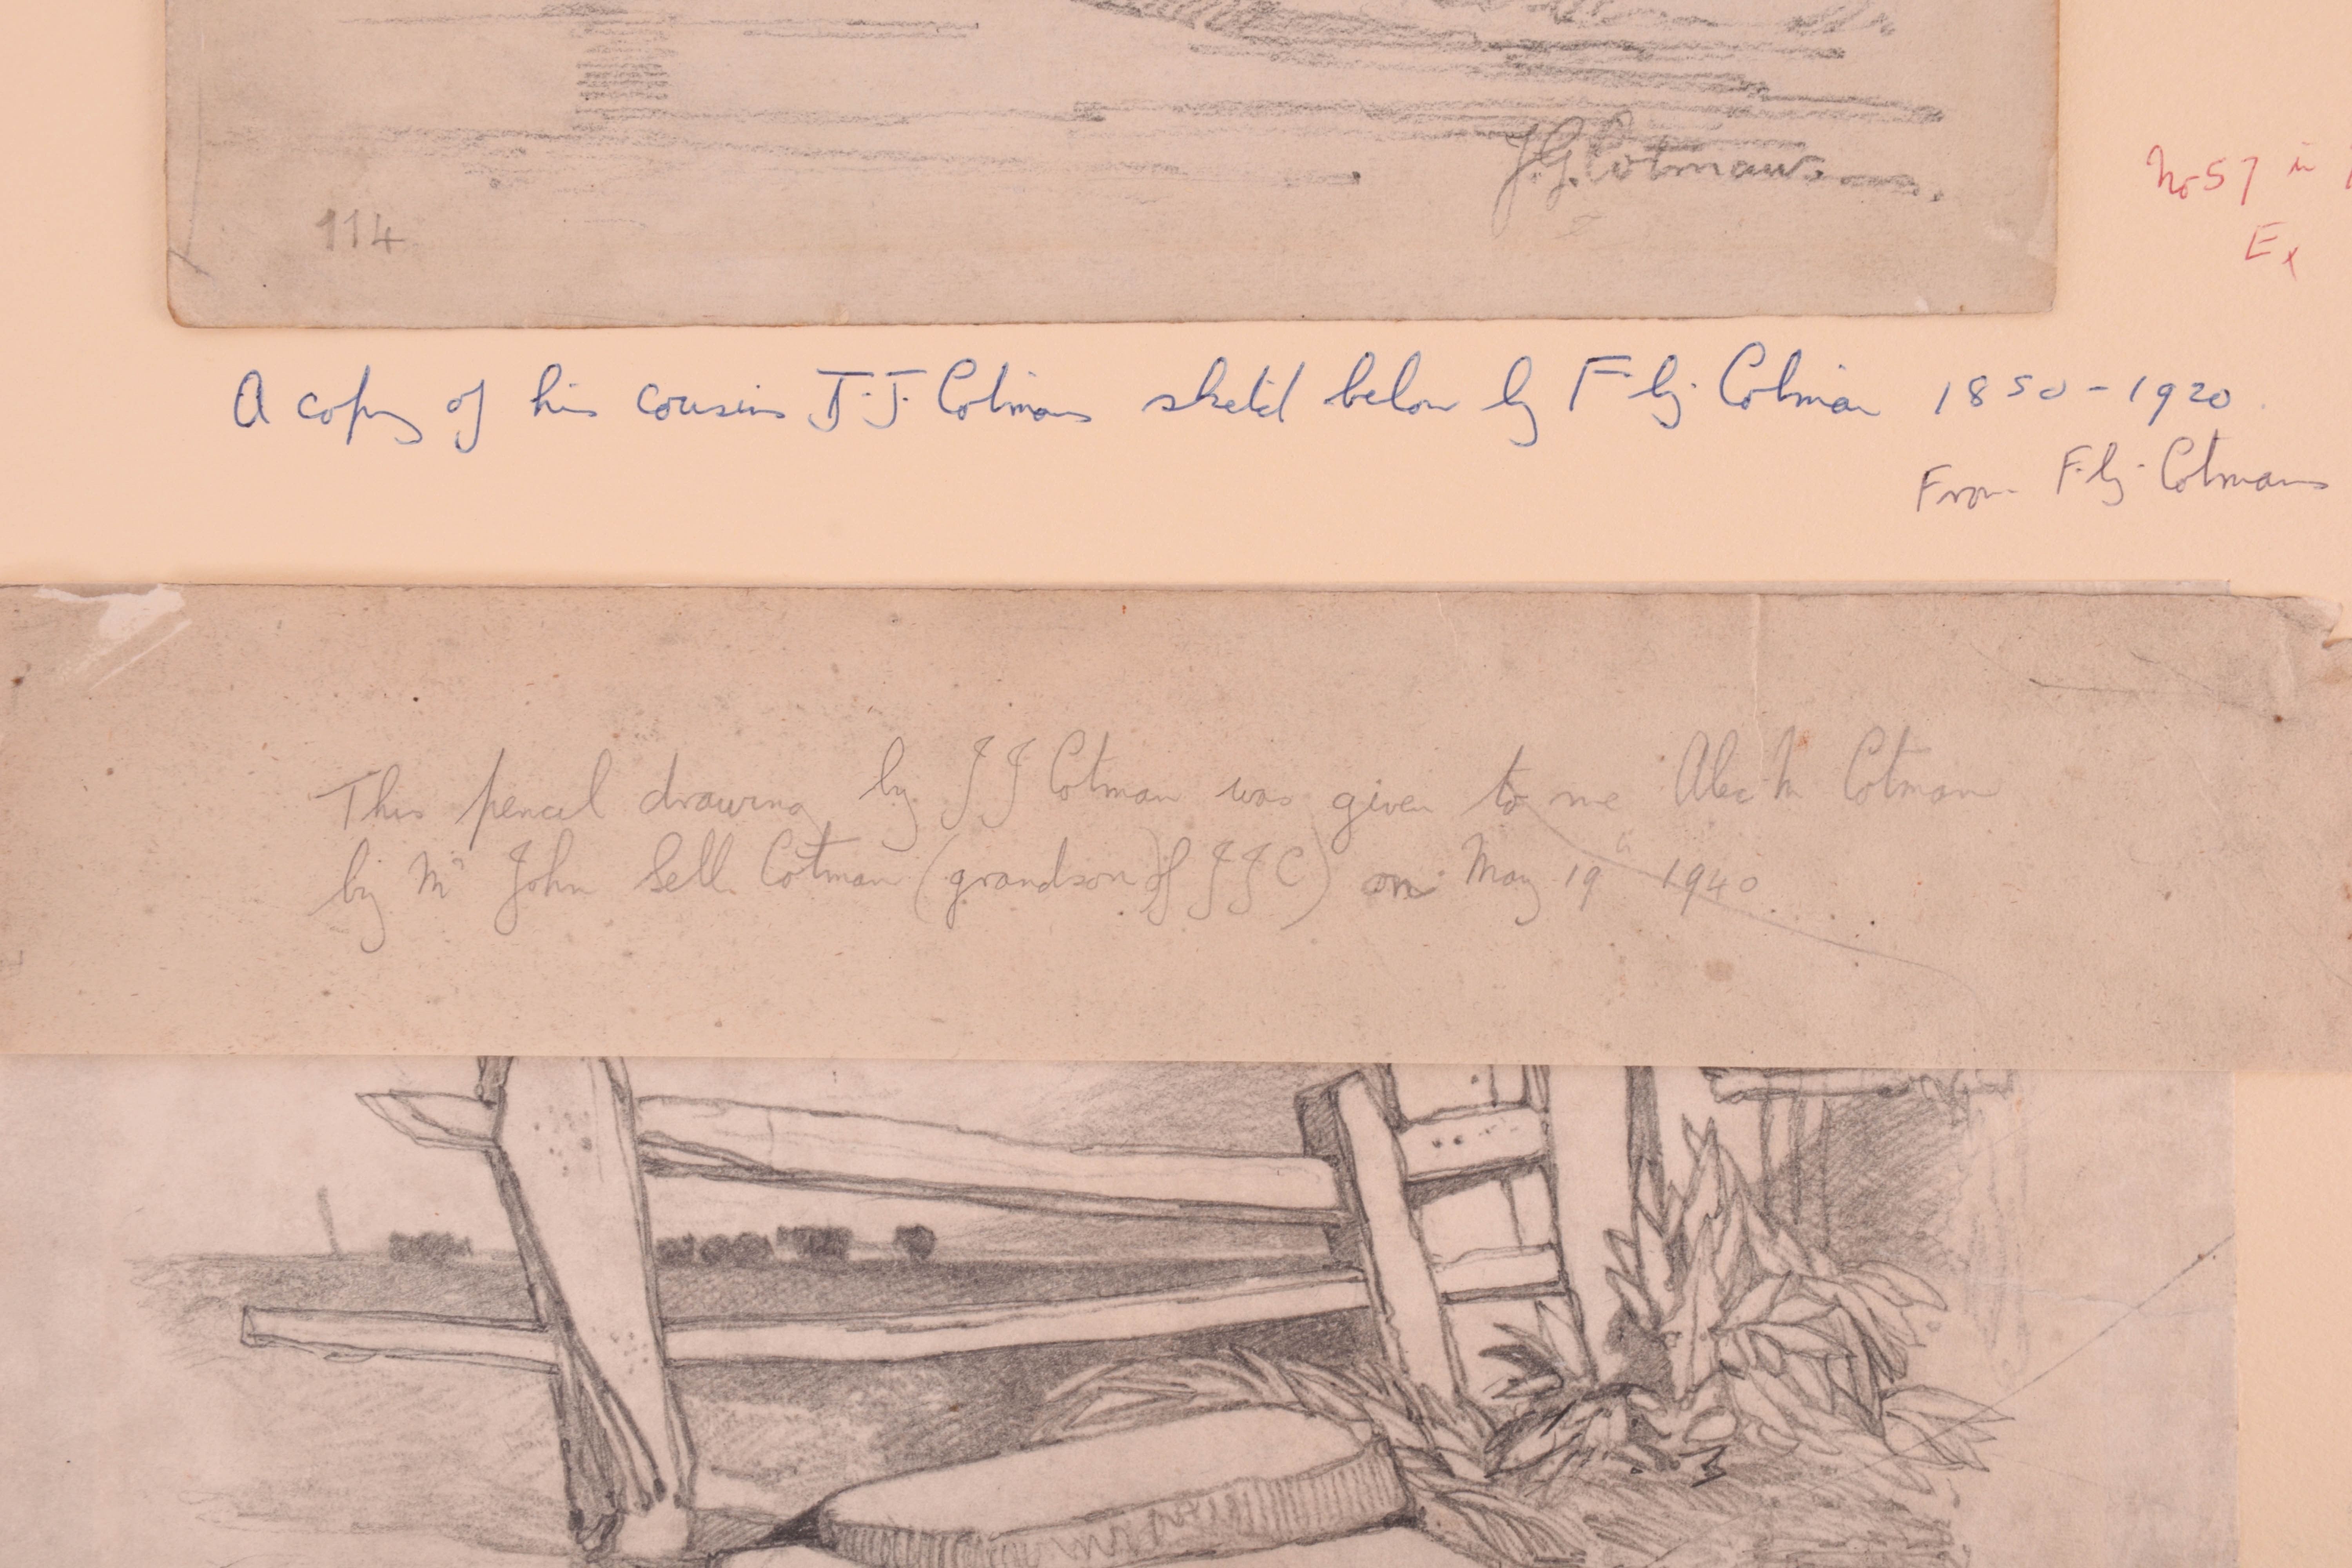 F.G. Cotman
114
No 57 in
Ex
A copy of his cousin J.J. Cotmans sketch below by F.G. Cotman 1850-1920.
From F.G. Cotmans
This pencil drawing by JJ Cotman was given to me Alec M Cotman
by Mr John Sell Cotman (grandson of JJC) on May 19th 1940